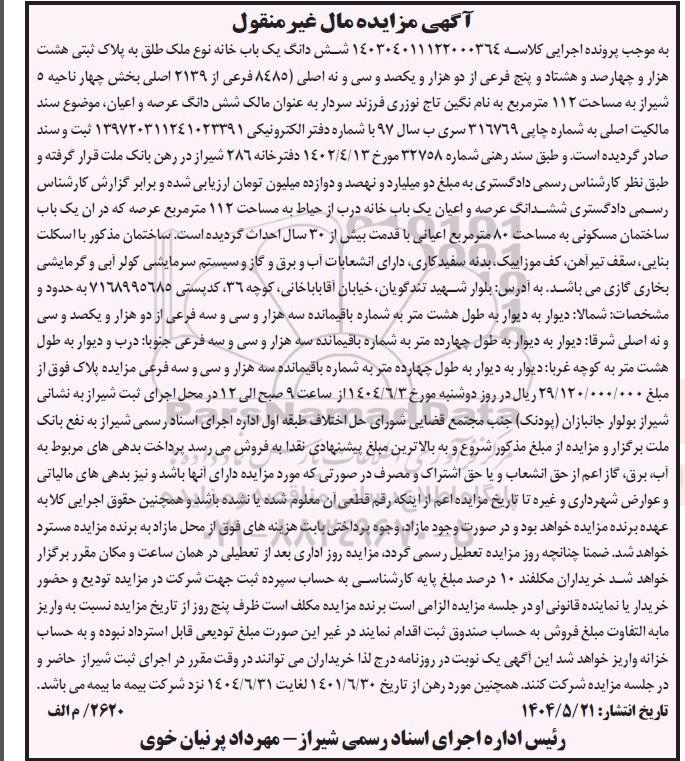 آگهی مزایده مال غیر منقول
به موجب پرونده اجرایی کلاسه ۱۴۰۳۰۴۰۱۱۱۲۲۰۰۰۳۶۴ شش دانگ یک باب خانه نوع ملک طلق به پلاک ثبتی هشت
هزار و چهارصد و هشتاد و پنج فرعی از دو هزار و یکصد و سی و نه اصلی (۸۴۸۵ فرعی از ۲۱۳۹ اصلی بخش چهار ناحیه ۵
شیراز به مساحت ۱۱۲ مترمربع به نام نگین تاج نوزری فرزند سردار به عنوان مالک شش دانگ عرصه و اعیان، موضوع سند
مالکیت اصلی به شماره چاپی ۳۱۶۷۶۹ سری ب سال ۹۷ با شماره دفتر الکترونیکی ۱۳۹۷۲۰۳۱۱۲۴۱۰۲۳۳۹۱ ثبت و سند
صادر گردیده است. و طبق سند رهنی شماره ۳۲۷۵۸ مورخ ۱۴۰۲/۴/۱۳ دفترخانه ۲۸۶ شیراز در رهن بانک ملت قرار گرفته و
طبق نظر کارشناس رسمی دادگستری به مبلغ دو میلیارد و نهصد و دوازده میلیون تومان ارزیابی شده و برابر گزارش کارشناس
رسمی دادگستری ششدانگ عرصه و اعیان یک باب خانه درب از حیاط به مساحت ۱۱۲ مترمربع عرصه که در ان یک باب
ساختمان مسکونی به مساحت ۸۰ مترمربع اعیانی با قدمت بیش از ۳۰ سال احداث گردیده است. ساختمان مذکور با اسکلت
بنایی، سقف تیرآهن، کف موزاییک، بدنه سفیدکاری، دارای انشعابات آب و برق و گاز و سیستم سرمایشی کولر آبی و گرمایشی
بخاری گازی می باشد. به آدرس: بلوار شهید تندگویان، خیابان آقاباباخانی، کوچه ۳۶، کدپستی ۷۱۶۸۹۹۵۶۸۵ به حدود و
مشخصات: شمالا: دیوار به دیوار به طول هشت متر به شماره باقیمانده سه هزار و سی و سه فرعی از دو هزار و یکصد و سی
و نه اصلی شرقا: دیوار به دیوار به طول چهارده متر به شماره باقیمانده سه هزار و سی و سه فرعی جنوبا: درب و دیوار به طول
هشت متر به کوچه غربا: دیوار به دیوار به طول چهارده متر به شماره باقیمانده سه هزار و سی و سه فرعی مزایده پلاک فوق از
مبلغ ۲۹/۱۲۰/۰۰۰/۰۰۰ ریال در روز دوشنبه مورخ ۱۴۰۴/۶/۳ از ساعت ۹ صبح الی ۱۲ در محل اجرای ثبت شیراز به نشانی
شیراز بولوار جانبازان (پودنک) جنب مجتمع قضایی شورای حل اختلاف طبقه اول اداره اجرای اسناد رسمی شیراز به نفع بانک
ملت برگزار و مزایده از مبلغ مذکور شروع و به بالاترین مبلغ پیشنهادی نقدا به فروش می رسد پرداخت بدهی های مربوط به
آب، برق، گاز اعم از حق انشعاب و یا حق اشتراک و مصرف در صورتی که مورد مزایده دارای آنها باشد و نیز بدهی های مالیاتی
و عوارض شهرداری و غیره تا تاریخ مزایده اعم از اینکه رقم قطعی آن معلوم شده یا نشده باشد و همچنین حقوق اجرایی کلا به
عهده برنده مزایده خواهد بود و در صورت وجود مازاد، وجوه پرداختی بابت هزینه های فوق از محل مازاد به برنده مزایده مسترد
خواهد شد. ضمنا چنانچه روز مزایده تعطیل رسمی گردد، مزایده روز اداری بعد از تعطیلی در همان ساعت و مکان مقرر برگزار
خواهد شد خریداران مکلفند ۱۰ درصد مبلغ پایه کارشناسی به حساب سپرده ثبت جهت شرکت در مزایده تودیع و حضور
خریدار یا نماینده قانونی او در جلسه مزایده الزامی است برنده مزایده مکلف است ظرف پنج روز از تاریخ مزایده نسبت به واریز
مابه التفاوت مبلغ فروش به حساب صندوق ثبت اقدام نمایند در غیر این صورت مبلغ تودیعی قابل استرداد نبوده و به حساب
خزانه واریز خواهد شد این آگهی یک نوبت در روزنامه درج لذا خریداران می توانند در وقت مقرر در اجرای ثبت شیراز حاضر و
در جلسه مزایده شرکت کنند. همچنین مورد رهن از تاریخ ۱۴۰۱/۶/۳۰ لغایت ۱۴۰۴/۶/۳۱ نزد شرکت بیمه ما بیمه می باشد.
تاریخ انتشار: ۱۴۰۴/۵/۲۱ ۲۶۲۰/ م الف
رئیس اداره اجرای اسناد رسمی شیراز - مهرداد پرنیان خوی
ParsNamadData
پایگاه اطلاع رسانی مناقصه و مزایده
۰۲۱-۸۸۳۴۹۶۷۰-۵